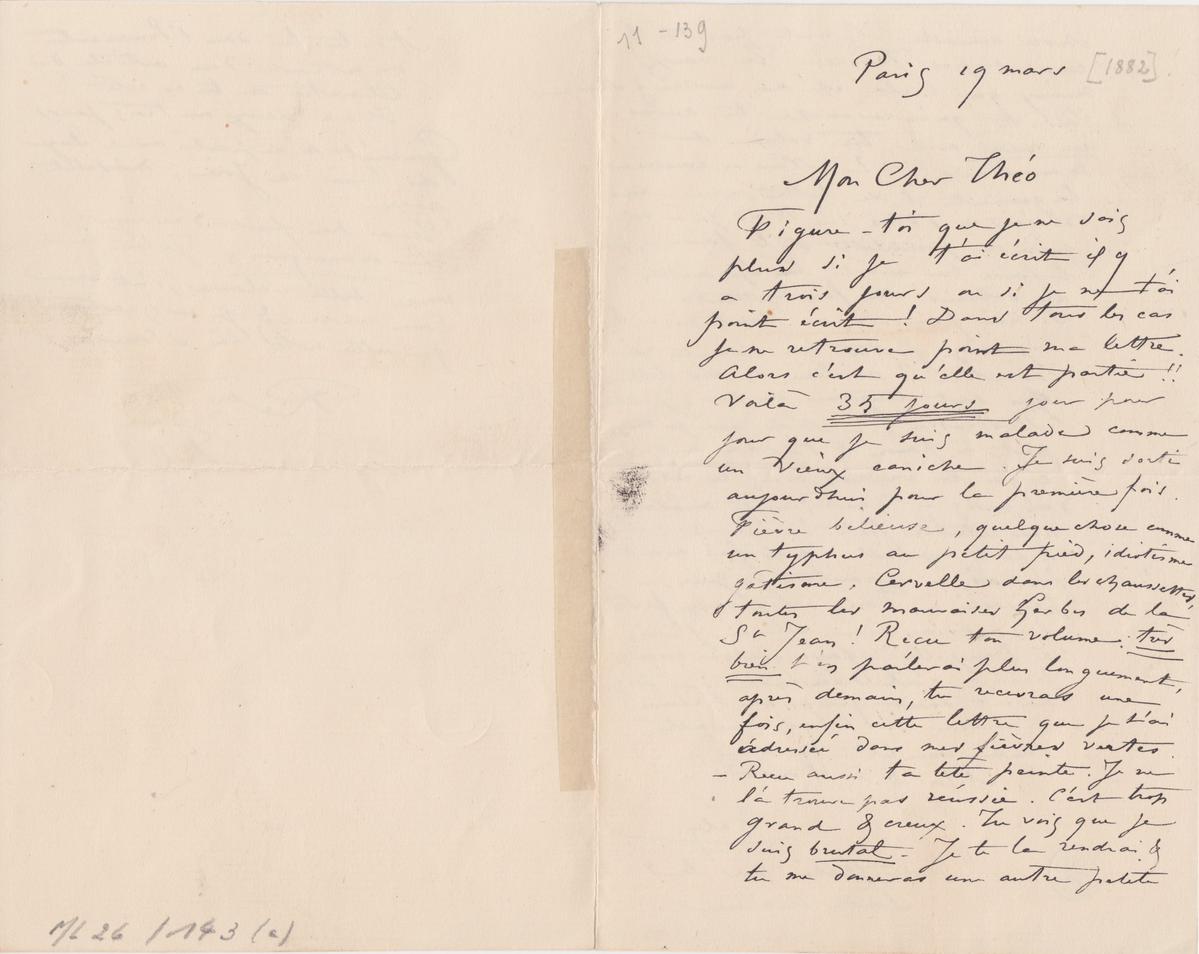 11 - 139
Paris 19 mars [1882]
Mon Cher Théo
Figure-toi que je ne sais
plus si je t'ai écrit il y
a trois jours ou si je ne t'ai
point écrit ! Dans tous les cas
je ne retrouve point ma lettre.
Alors c'est qu'elle est partie !!
Voilà 35 jours jour pour
jour que je suis malade comme
un vieux caniche. Je suis sorti
aujourdhui pour la première fois.
Fièvre bilieuse, quelque chose comme
un typhus au petit pied, idiotisme
gâtisme, Cervelle dans les chaussettes,
toutes les mauvaises herbes de la
St Jean ! Recu ton volume. très
bien t'en parlerai plus longuement,
après demain, tu recevras une
fois, enfin cette lettre que je t'ai
adressée dans mes fièvres vertes.
- Recu aussi ta tete peinte. Je ne
la trouve pas réussie. C'est trop
grand & creux. Tu vois que je
suis brutal - Je te la rendrai &
tu me donneras une autre petite
ML 26 / 143 (a)